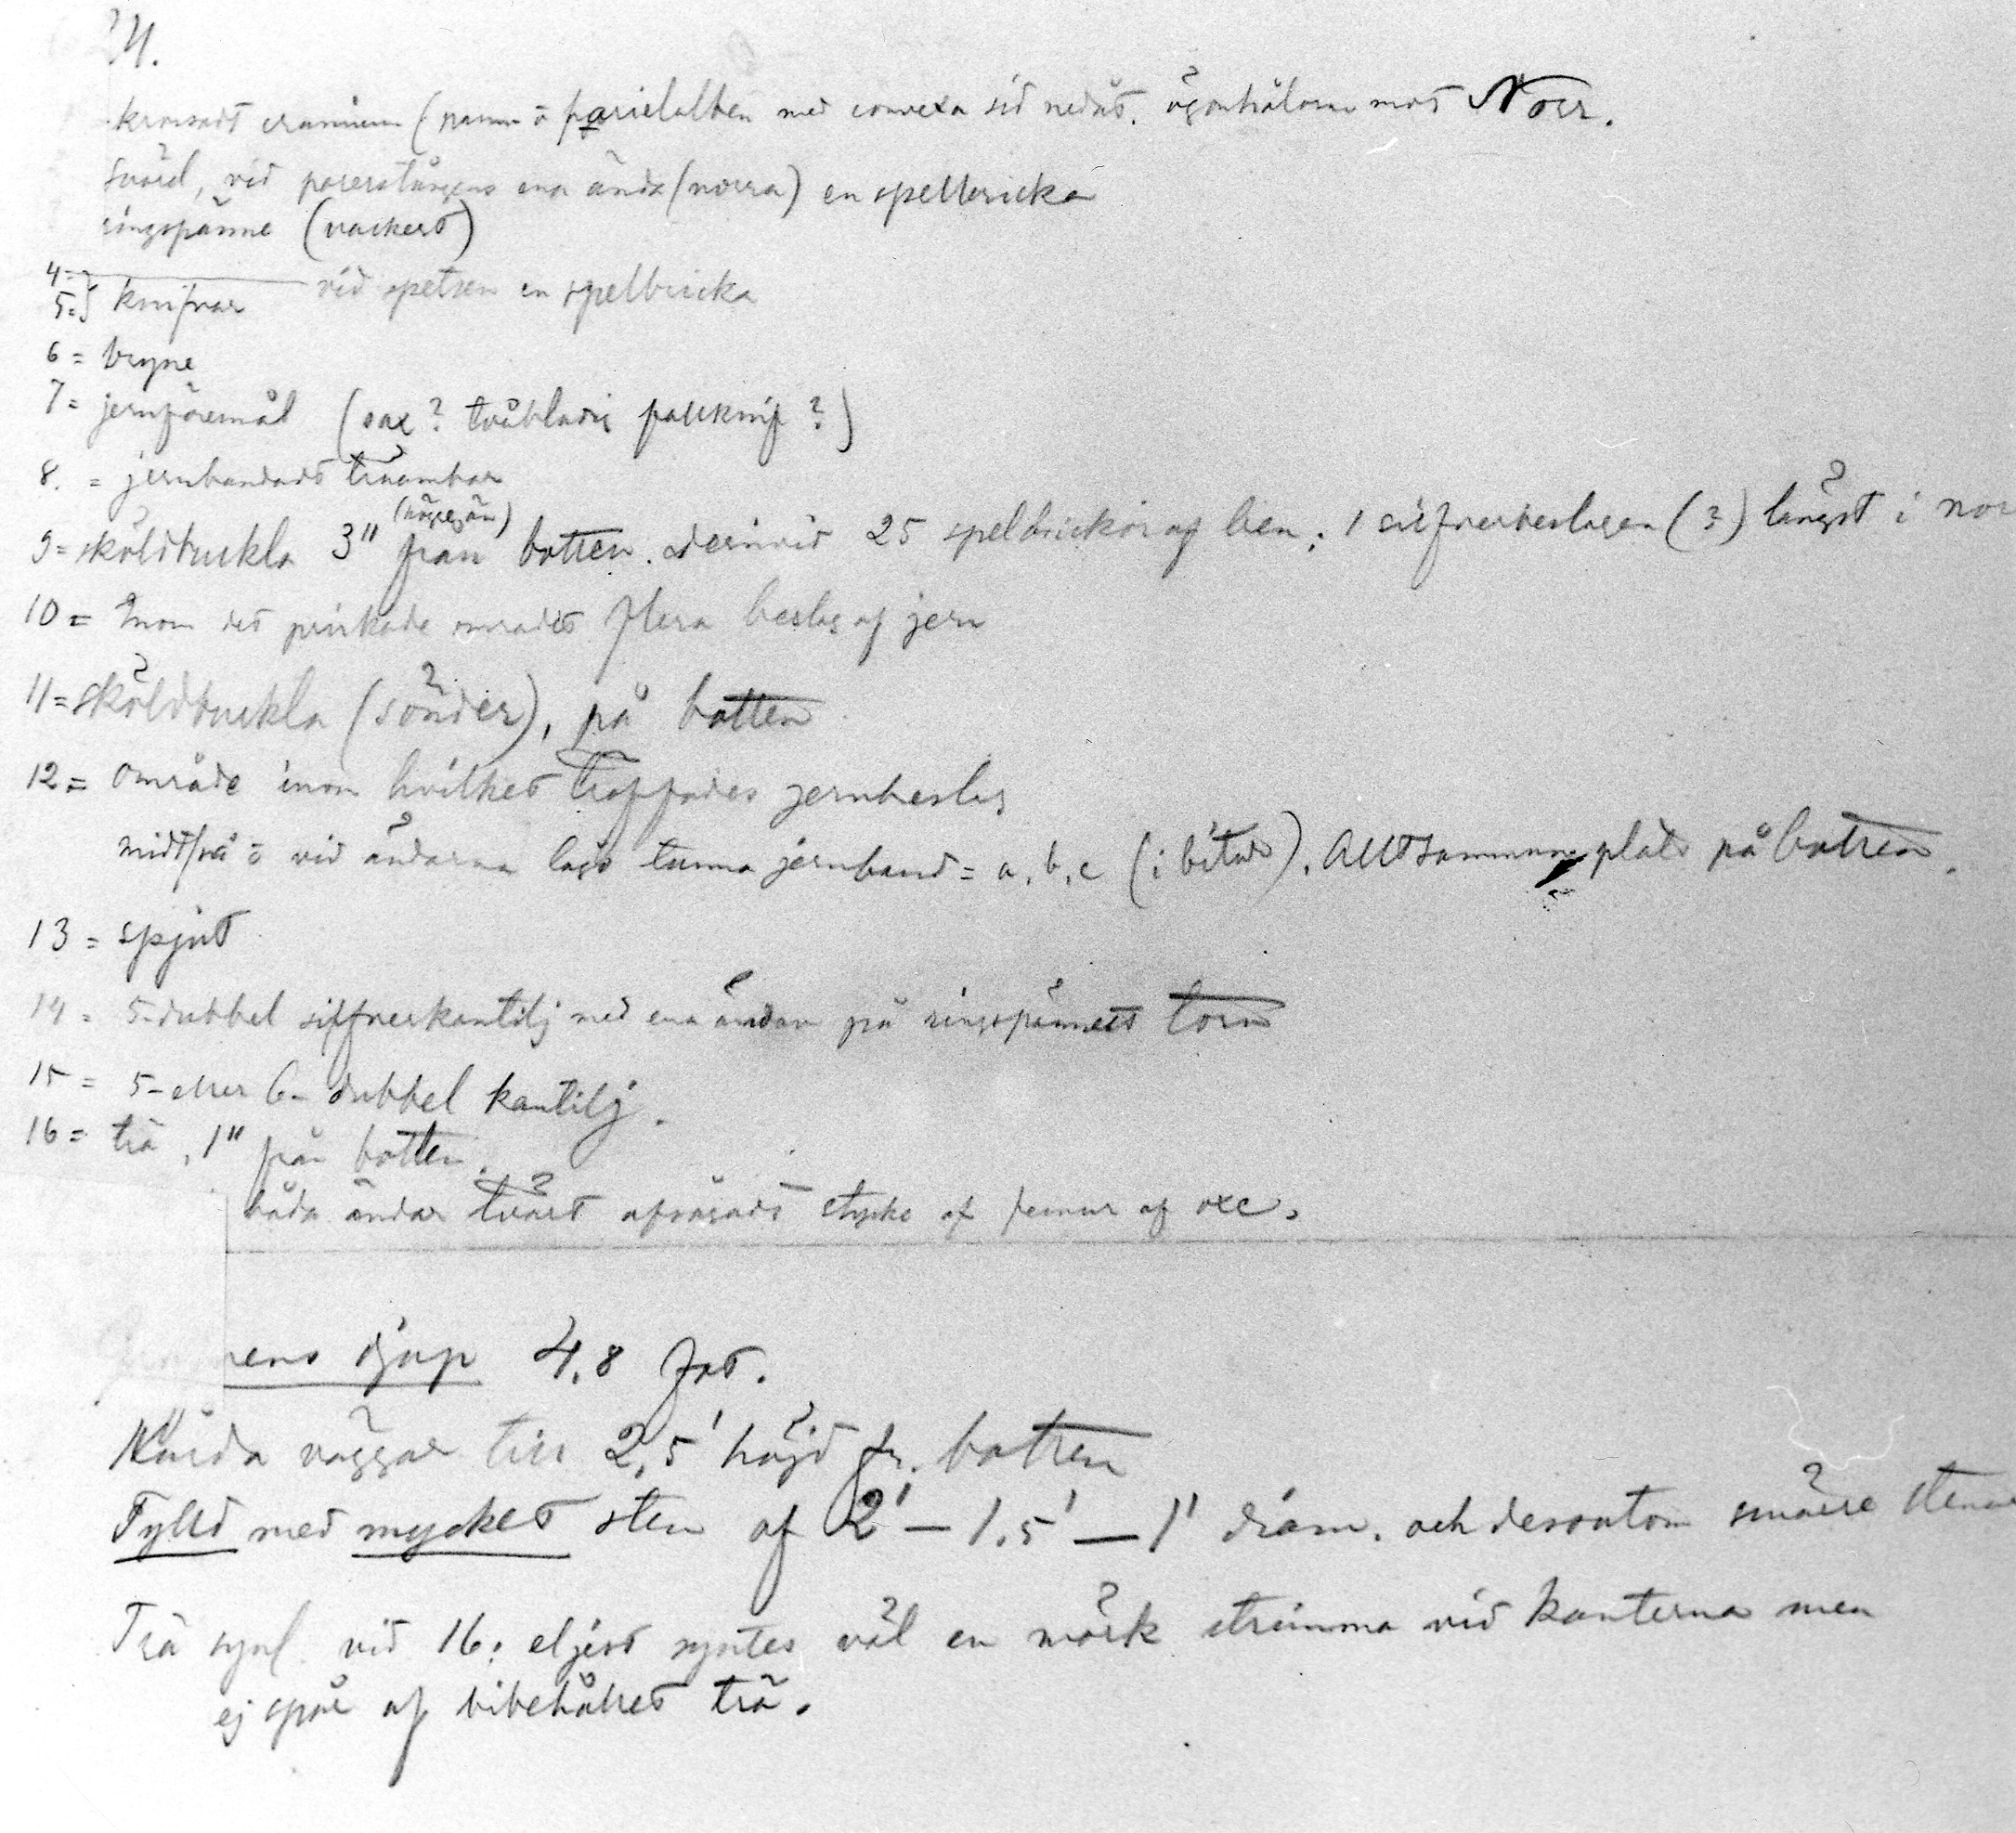 krossadt cranium (pann- o parietalben med convexa sid nedåt. ögonhålorna mot Norr.
Svärd, vid parerstångens ena ända (norra) en spelbricka
ringspänne (vackert)
4=
5=} knifvar vid spetsen en spelbricka
6 = bryne
7 = jernföremål (sax? tvåbladig fällknif?)
8. = jernbandadt träämbar
9 = sköldbuckla 3" från botten. Dervid 25 spelbrickor af ben; 1 silfverbeslagen (?) längst i nor
10 = Inom det prickade området flera beslag af jern
11 = sköldbuckla (sönder), på botten
12 = område inom hvilket träffades jernbeslag
midtpå o vid ändarna lågo tunna jernband = a, b, c (i bitar). Alltsammans platt på botten.
13 = spjut
14 = 5-dubbel silfverkantilj med ena ändan på ringspännets torn
15 = 5- eller 6-dubbel kantilj.
16 = trä, 1" från botten.
båda ändar tvärt afsågadt stycke af femur af oxe.
ens djup 4,8 fot.
Hårda väggar till 2,5' höjd fr. botten
Fylld med mycket sten af 2' – 1,5' – 1' diam. och desutom smärre stenar
Trä synl. vid 16; eljest syntes väl en mörk strimma vid kanterna men
ej spår af bibehållet trä.